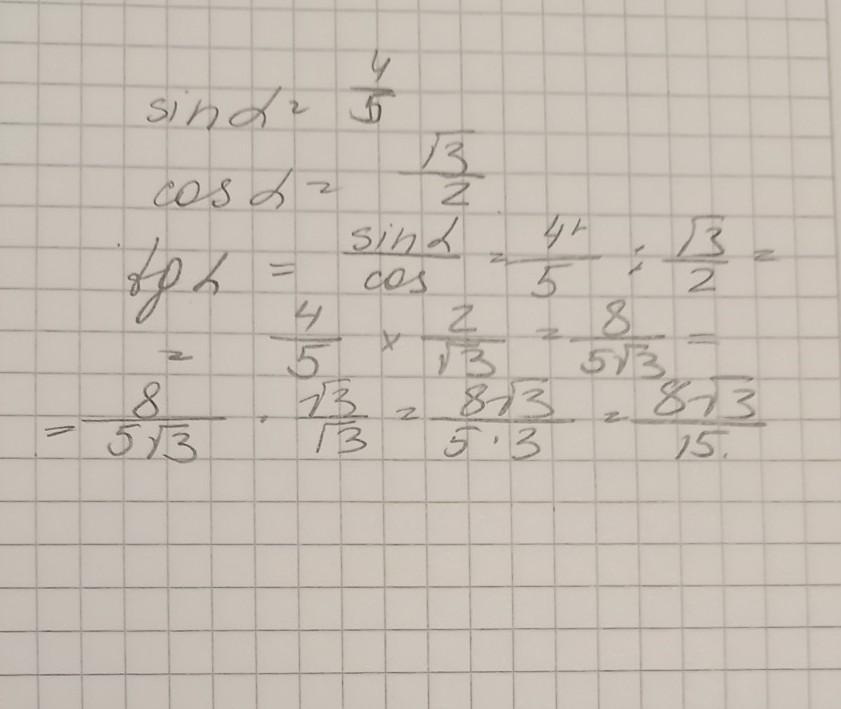 sin α = 4/5
cos α = √3/2
tg α = sin α/cos = 4/5 : √3/2 =
= 4/5 × 2/√3 = 8/5√3 =
= 8/5√3 · √3/√3 = 8√3/5·3 = 8√3/15.